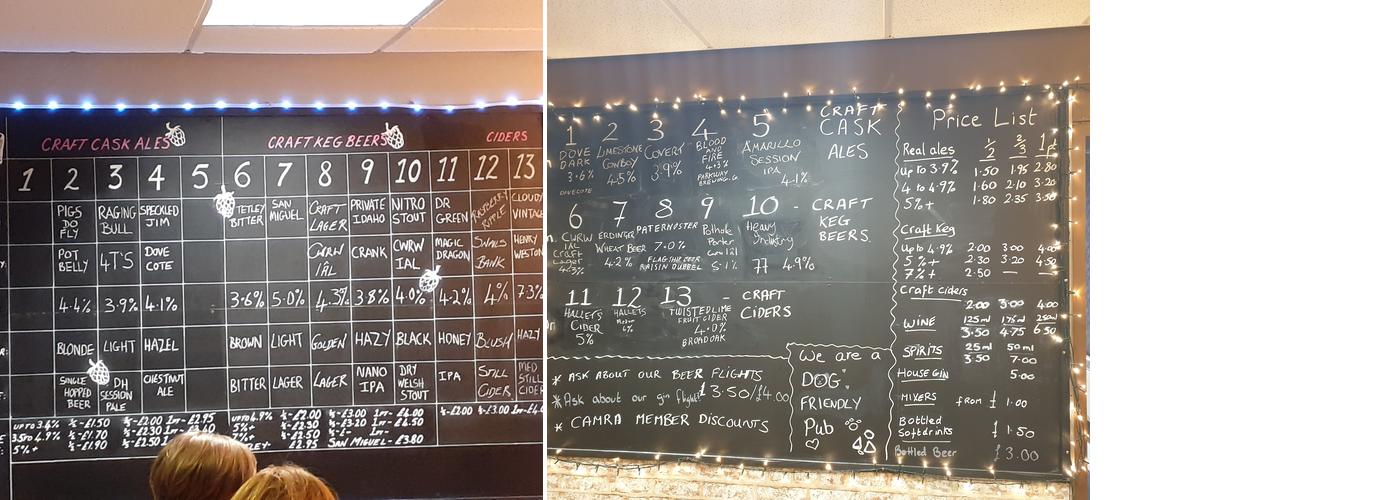 CRAFT CASK ALES CRAFT KEG BEERS CIDERS
1 2 3 4 5 6 7 8 9 10 11 12 13
PIGS DO FLY RAGING BULL SPECKLED JIM TETLEY BITTER SAN MIGUEL CRAFT LAGER PRIVATE IDAHO NITRO STOUT DR GREEN RASPBERRY RIPPLE CLOUDY VINTAGE
POT BELLY 4T'S DOVE COTE CWRW IAL CRANK CWRW IAL MAGIC DRAGON SWALS BANK HENRY WESTON
4.4% 3.9% 4.1% 3.6% 5.0% 4.3% 3.8% 4.0% 4.2% 4% 7.3%
BLONDE LIGHT HAZEL BROWN LIGHT GOLDEN HAZY BLACK HONEY BLUSH HAZY
SINGLE HOPPED BEER DH SESSION PALE CHESTNUT ALE BITTER LAGER LAGER NANO IPA DRY WELSH STOUT IPA STILL CIDER MED STILL CIDER
SAN MIGUEL - £3.80
1 2 3 4 5 CRAFT CASK ALES
DOVE DARK 3.6% DOVECOTE
LIMESTONE COWBOY 4.5%
COVERT 3.9%
BLOOD AND FIRE 4.3% PARKWAY BREWING. Co
AMARILLO SESSION IPA 4.1%
6 7 8 9 10 - CRAFT KEG BEERS.
CWRW IAL Craft Lager 4.3%
ERDINGER WHEAT BEER 4.2%
PATERNOSTER 7.0% FLAGSHIP BEER RAISIN DUBBEL
Pothole Porter Cwrw Ial 5.1%
Heavy Industry 77 4.9%
11 12 13 - CRAFT CIDERS
HALLETS CIDER 5%
HALLETS
TWISTED LIME FRUIT CIDER 4.0% BROADOAK
* ASK ABOUT OUR BEER FLIGHTS
* Ask about our gin flights £3.50/£4.00
* CAMRA MEMBER DISCOUNTS
We are a
DOG
FRIENDLY
Pub
Price List
Real ales 1/2 2/3 1pt
up to 3.9% 1.50 1.95 2.80
4 to 4.9% 1.60 2.10 3.20
5%+ 1.80 2.35 3.50
Craft Keg
up to 4.9% 2.00 3.00 4.00
5%+ 2.30 3.20 4.50
7%+ 2.50 — —
Craft ciders
2.00 3.00 4.00
WINE 125ml 175ml 250ml
3.50 4.75 6.50
SPIRITS 25ml 50ml
3.50 7.00
HOUSE GIN 5.00
MIXERS from £1.00
Bottled
Soft drinks £1.50
Bottled Beer £3.00